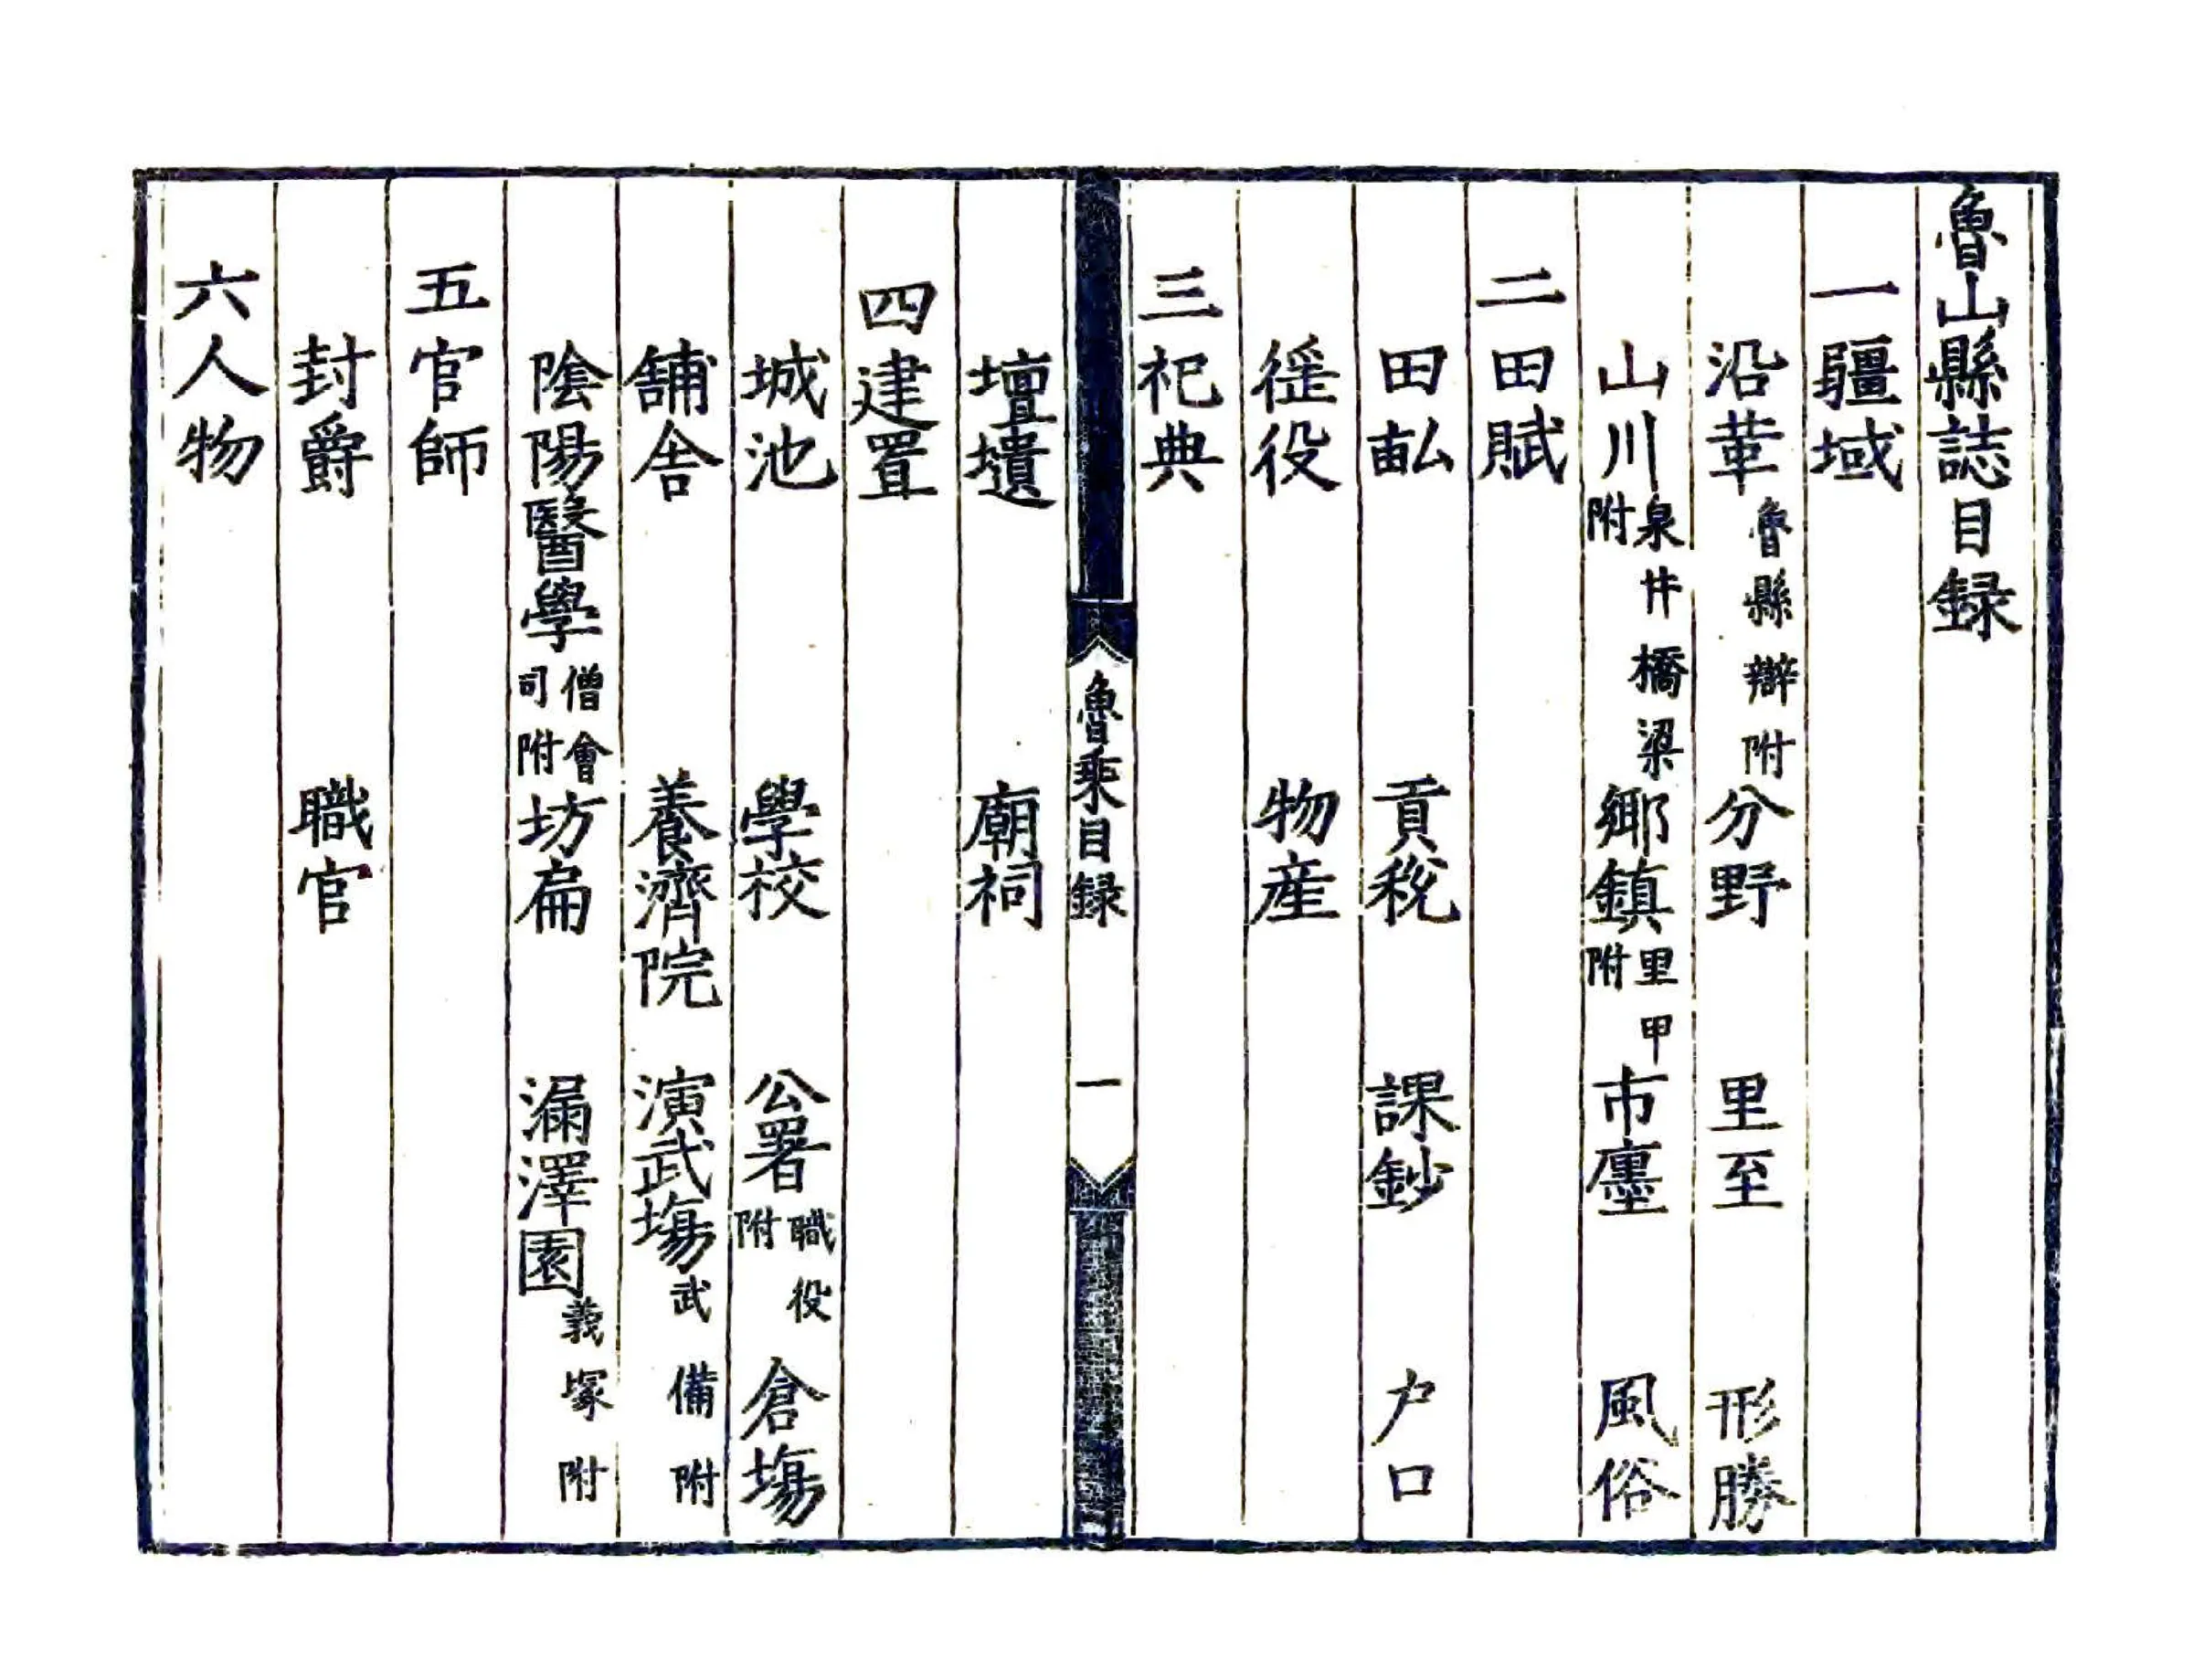 魯山縣誌目録
一疆域
沿革魯縣辯附分野 里至 形勝
山川泉井橋梁附鄉鎮里甲附市廛 風俗
二田賦
田畝 貢稅 課鈔 户口
徭役 物産
三祀典
魯乘目録 一
壇壝 廟祠
四建置
城池 學校 公署職役附倉塲
舖舍 養濟院 演武塲武備附
陰陽醫學僧會司附坊扁 漏澤園義塚附
五官師
封爵 職官
六人物